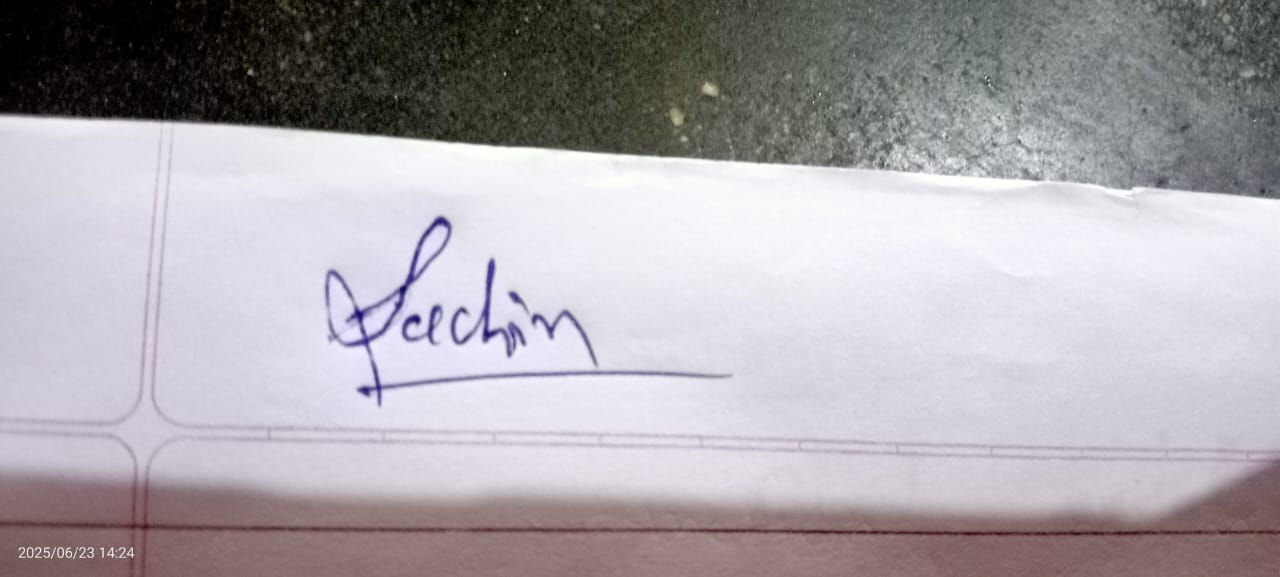 Sachin
2025/06/23 14:24